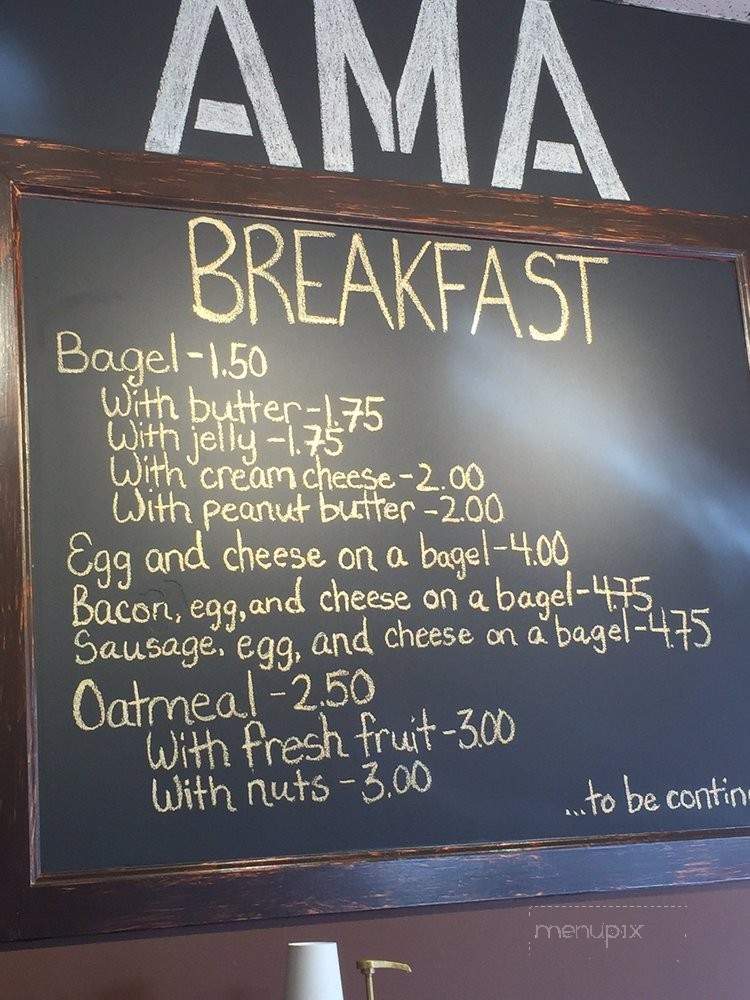 AMA
BREAKFAST
Bagel-1.50
With butter-1.75
With jelly-1.75
With cream cheese-2.00
With peanut butter-2.00
Egg and cheese on a bagel-4.00
Bacon, egg, and cheese on a bagel-4.75
Sausage, egg, and cheese on a bagel-4.75
Oatmeal-2.50
With fresh fruit-3.00
With nuts-3.00
...to be contin
menupix